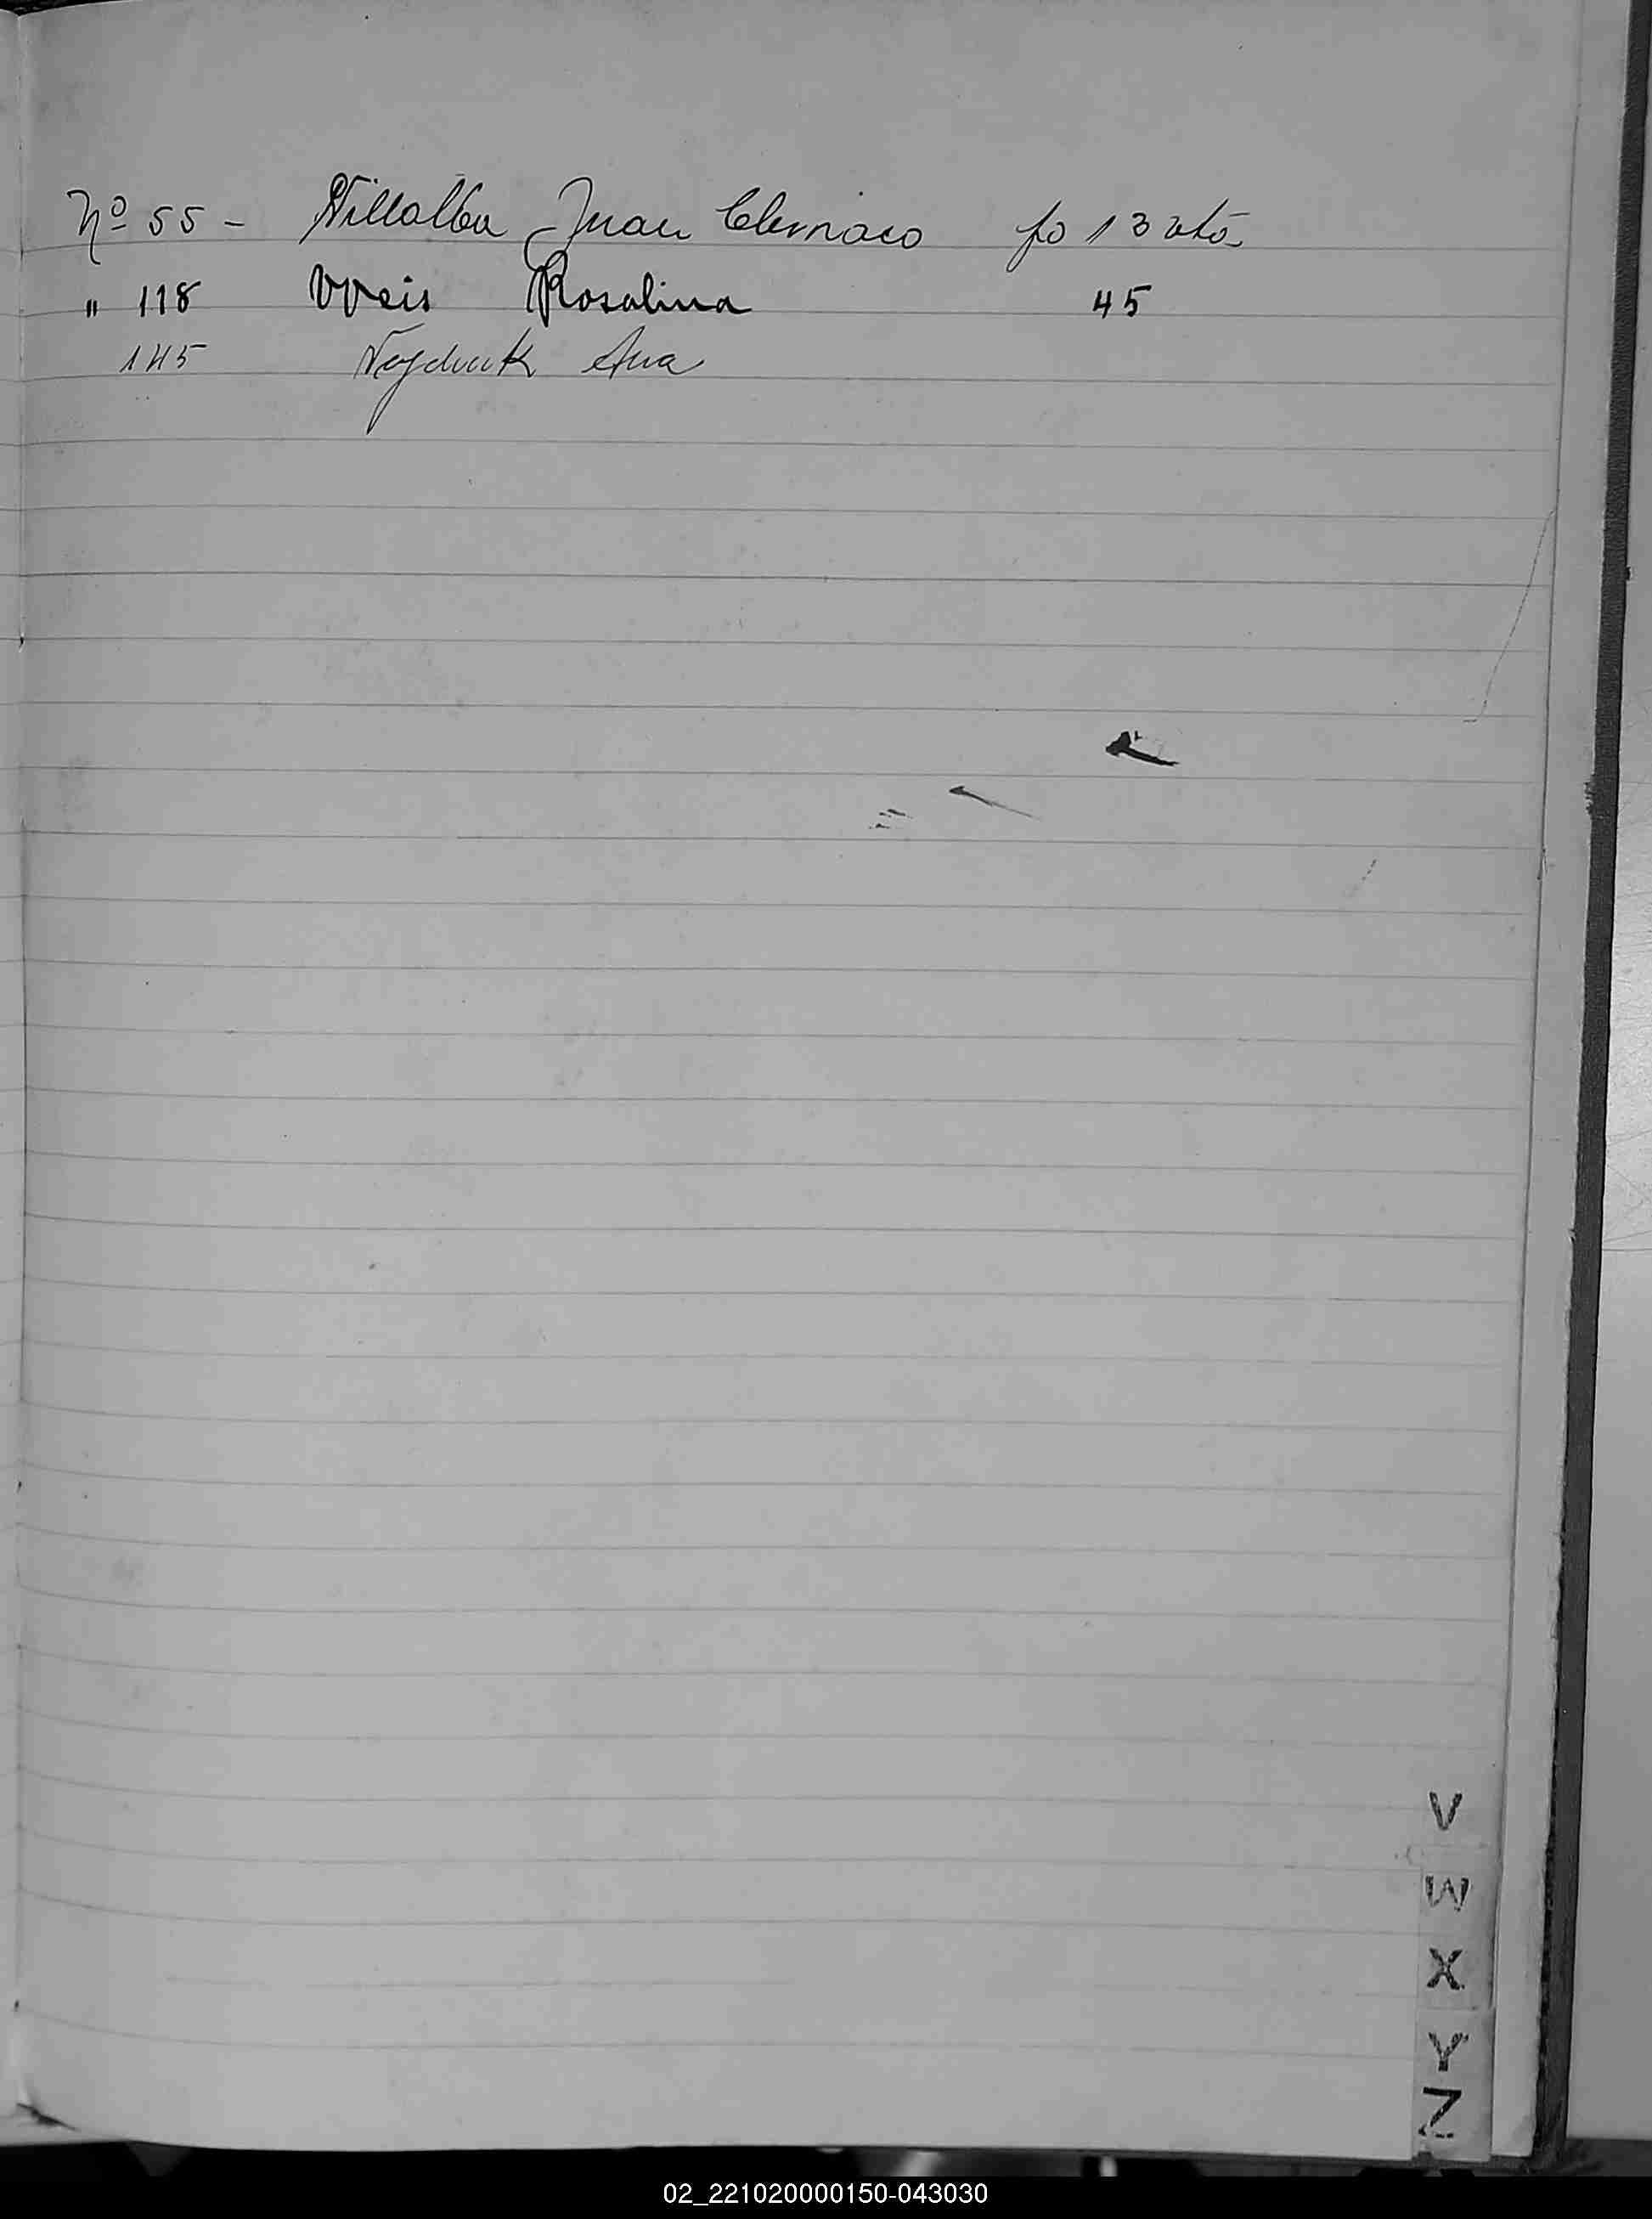 Nº 55 - Villalba Juan Climaco fo 13 vto
" 118 Weis Rosalina 45
145 Vojduk Ana
V
W
X
Y
Z
02_221020000150-043030